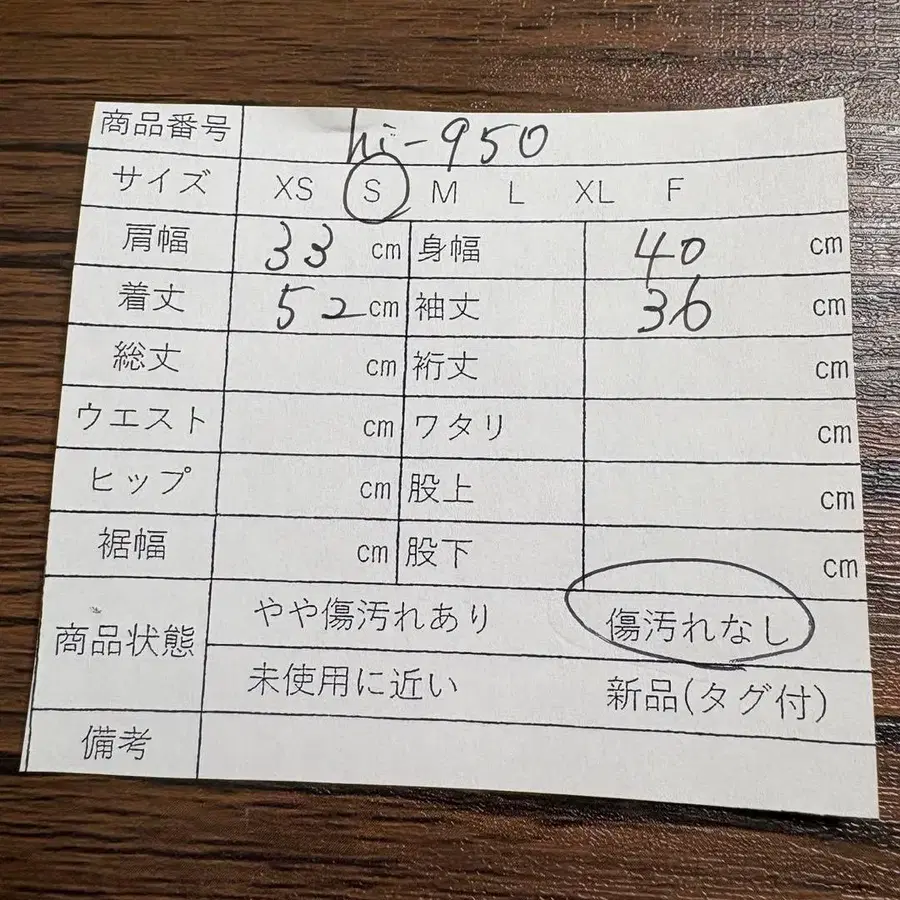 商品番号 hi-950
サイズ XS S M L XL F
肩幅 33 cm 身幅 40 cm
着丈 52 cm 袖丈 36 cm
総丈 cm 裄丈 cm
ウエスト cm ワタリ cm
ヒップ cm 股上 cm
裾幅 cm 股下 cm
商品状態 やや傷汚れあり 傷汚れなし
未使用に近い 新品(タグ付)
備考